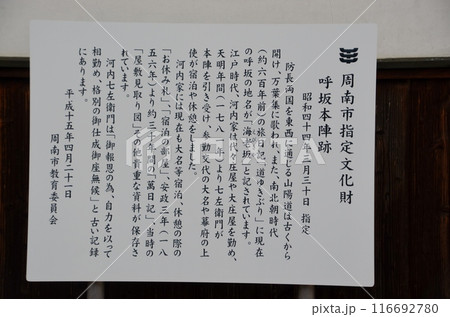 周南市指定文化財
呼坂本陣跡
昭和四十四年 月三十日 指定
防長両国を東西に通じる山陽道は古くから
開け、万葉集に歌われ、また、南北朝時代
(約六百年前)の旅日記「道ゆきぶり」に現在
の呼坂の地名が「海老坂」と記されています。
江戸時代、河内家は代々庄屋や大庄屋を勤め、
天明年間(一七八 )より七左衛門が
本陣を引き受け、参勤交代の大名や幕府の上
使が宿泊や休憩をしました。
河内家には現在も大名等宿泊、休憩の際の
「お休み札」、「宿泊の部屋」、安政三年(一八
五六年)より約三 年間の「萬日記」、当時の
「屋敷見取り図」その他貴重な資料が保存さ
れています。
河内七左衛門は「御報恩の為、自力を以って
相勤め、格別の御仕成御座無候」と古い記録
にあります。
平成十五年四月二十一日
周南市教育委員会
116692780